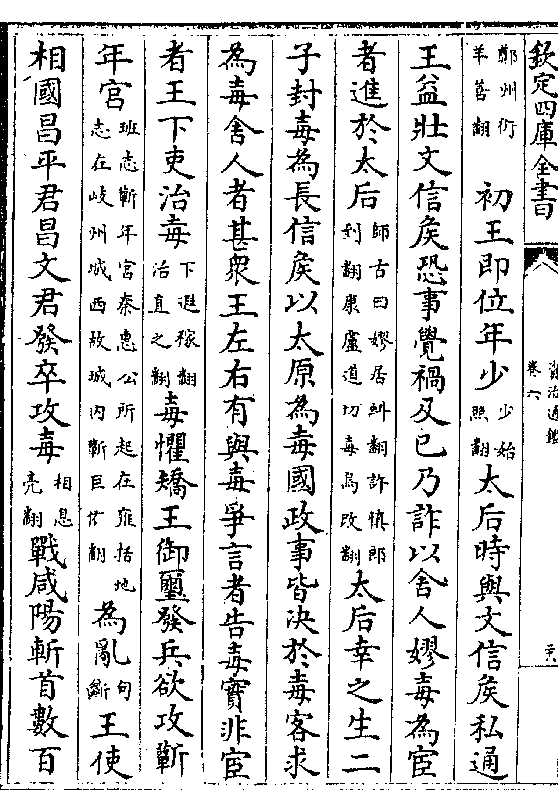 欽定四庫全書 資治通鑑 卷六
鄭州衍羊善翻 初王即位年少少始照翻太后時與文信侯私通
王益壯文信侯恐事覺禍及己乃詐以舍人嫪毐為宦
者進於太后師古曰嫪居糾翻許慎郎到翻康盧道切毐烏改翻太后幸之生二
子封毐為長信侯以太原為毐國政事皆决於毐客求
為毐舍人者甚衆王左右有與毐爭言者告毐實非宦
者王下吏治毐下遐稼翻治直之翻毐懼矯王御璽發兵欲攻蘄
年宮班志蘄年宮秦惠公所起在雍括地志在岐州城西故城内蘄巨依翻為亂句斷王使
相國昌平君昌文君發卒攻毐相息亮翻戰咸陽斬首數百